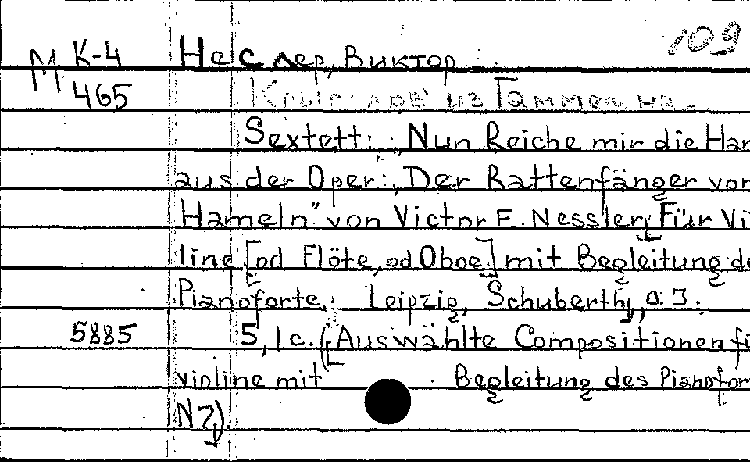 109
M K-4 Несслер, Виктор
465 Крысолов из Гаммельна.
Sextett: „Nun Reiche mir die Han
aus der Oper: „Der Rattenfänger von
Hameln" von Victor E. Nessler, Für Vi
line [od Flöte, od Oboe] mit Begleitung de
Pianoforte. Leipzig, Schuberth, o. J.
5885 5, 1 c. (Auswählte Compositionen fü
violine mit Begleitung des Pianofor
N 7)